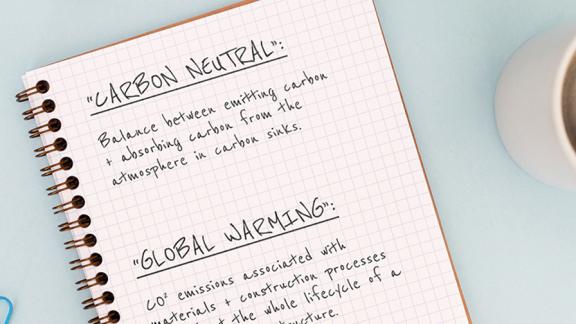 "CARBON NEUTRAL":
Balance between emitting carbon
+ absorbing carbon from the
atmosphere in carbon sinks.
"GLOBAL WARMING":
CO² emissions associated with
materials + construction processes
the whole lifecycle of a